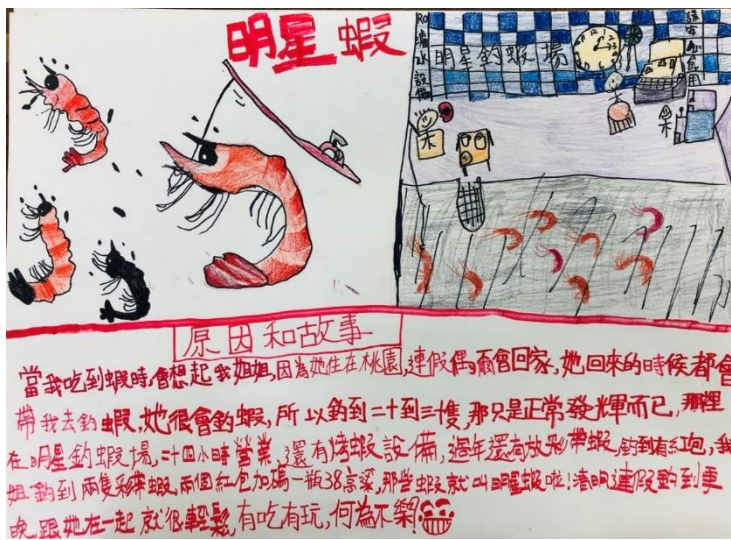 明星蝦
明星釣蝦場
RO廢水設備
原因和故事
當我吃到蝦時,會想起我姐姐,因為她住在桃園,連假偶爾會回家,她回來的時候都會
帶我去釣蝦,她很會釣蝦,所以釣到二十到三隻,那只是正常發輝而已,那裡
在明星釣蝦場,二十四小時營業,還有烤蝦設備,過年還有放彩帶蝦,釣到有紅包,我
姐釣到兩隻彩帶蝦,兩個紅包加碼一瓶38高粱,那些蝦就叫明星蝦啦!清明連假釣到半
晚,跟她在一起就很輕鬆,有吃有玩,何為不樂!